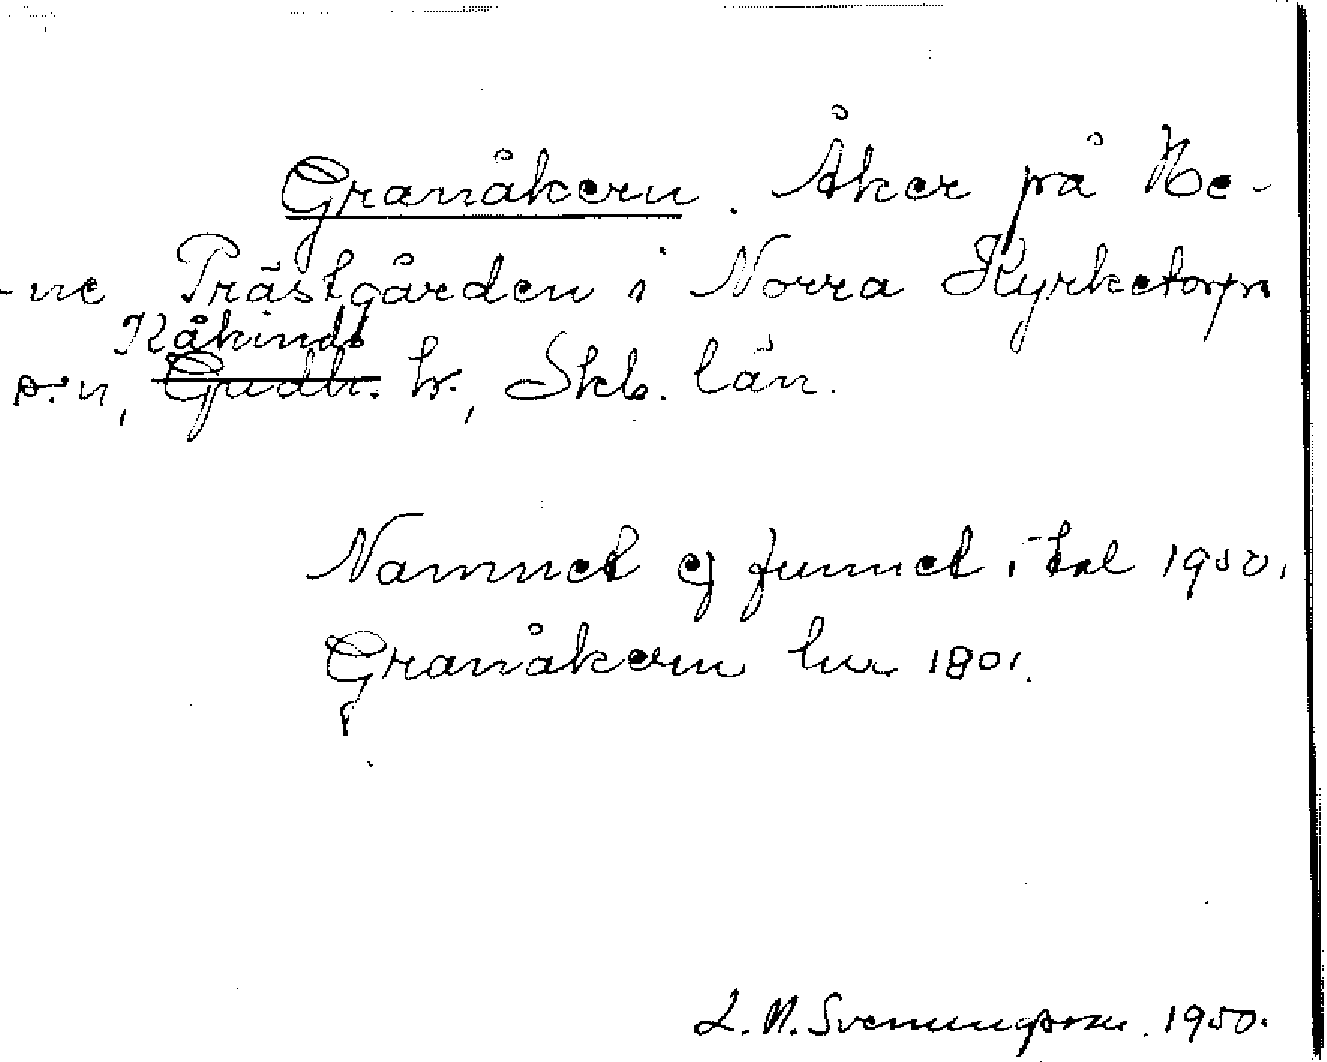 Granåkern. Åker på He-
-ne Prästgården i Norra Kyrketorp
Kåkinds
s:n, Gudh. hr., Skb. län.
Namnet ej funnet i tal 1950.
Granåkern lm 1801.
L. N. Svenungsson. 1950.